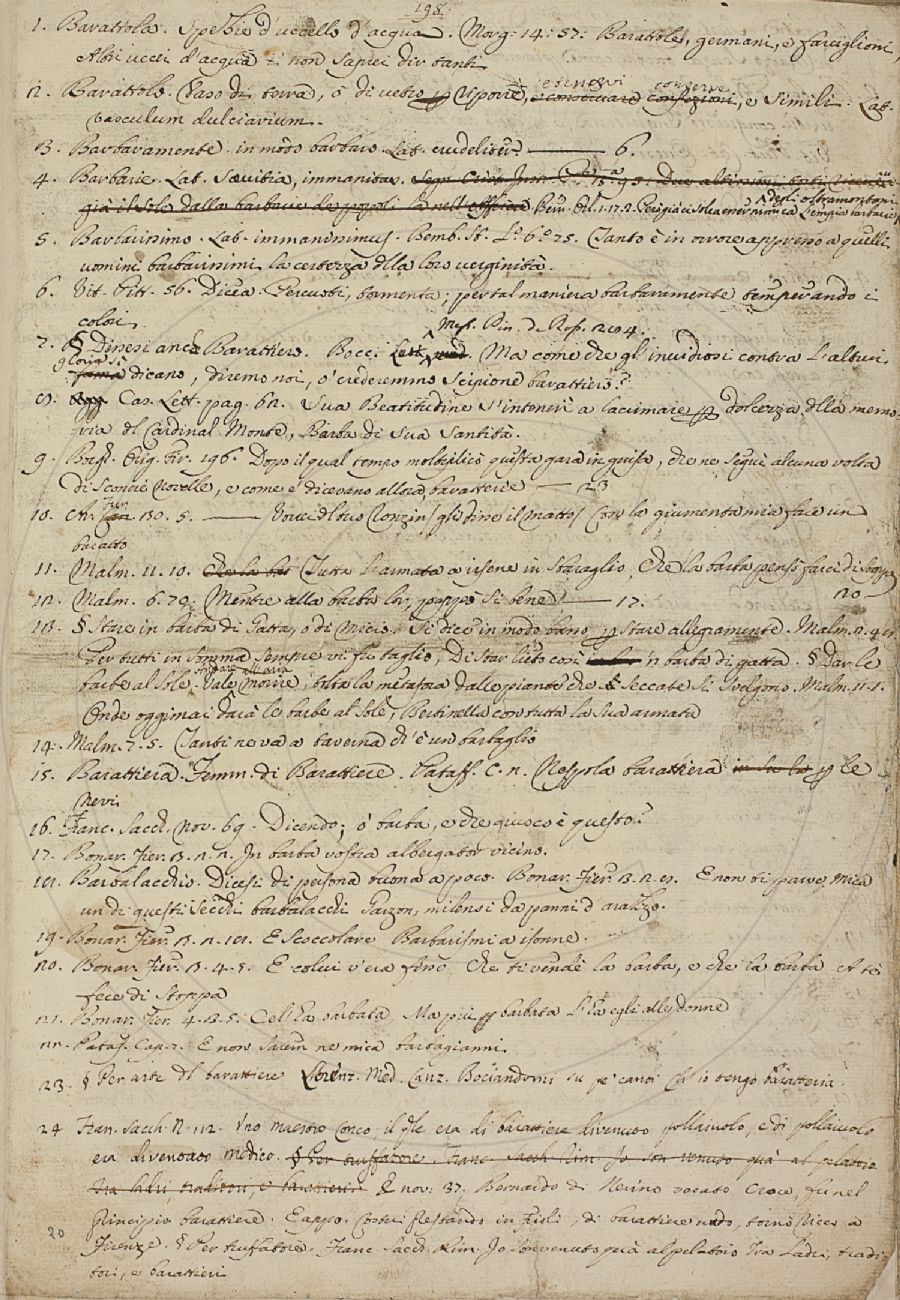 198.
1. Barattola. Spezie d'uccello d'acqua. Morg: 14: 57: Barattole, germani, e farciglioni,
Altri uccei d'acqua i non saprei dir tanti
2. Barattolo. Vaso di terra, ò di vetro p riporre, e tenervi conserve, e simili. Lat.
vasculum dulciarium.
3. Barbaramente. in modo barbaro. Lat. crudeliter. ——— 6.
4. Barbarie. Lat. Saevitia, immanitas.
già il Sole dalla barbarie de popoli
5. Barbarissimo. Lat. immanissimus. Bemb. St. L.º 6.º 75. Tanto è in orrore appresso a quelli
uomini barbarissimi la certezza dlla loro verginità.
6. Vit. Pitt. 56. Dicea Percuoti, tormenta; per tal maniera barbaramente temperando i
colori.
7. § Dicesi anche Barattiero. Bocci Mess. Rin. d. Ma come che gl'invidiosi contra l'altrui
gloria si dicano, diremo noi, o' crederemmo Scipione barattiero?
8. Cas. Lett. pag. 62. Sua Beatitudine s'intenerì a lacrimare p dolcezza dlla memo-
ria dl Cardinal Monte, Barba di Sua Santità.
9. Borgh. Orig. Fir. 196. Dopo il qual tempo moltiplicò questa gara in guisa, che ne seguì alcuna volta
di sconcie novelle, e come e' dicevano allora, baratterie — 23
10. Ar. Fur. 30. 5. ——— Vo' cu'l tuo Ronzin/ gli disse il matto/ Con la giumenta mia fare un
baratto
11. Malm. 11. 10. Tutta l'armata a irsene in sbaraglio, Che la barba pensò farci di stoppa
20.
12. Malm. 6. 79. Mentre alla barba lor pappò sì bene ——— 17.
13. § Stare in barba di Gatta, o di micio. Si dice in modo basso p stare allegramente. Malm. 2. 4
Per tutti in somma sempre vi fu taglio, Di star lieto così 'n barba di gatta. § Dar le
barbe al sole. Vale morire, tolta la metafora dalle piante che seccate si svelgono. Malm. 11. 1.
Onde oggimai darà le barbe al sole, Bertinella con tutta la sua armata
14. Malm. 7. 5. Tanti ne va a taverna ch'è un barbaglio
15. Barattiera. Femm. di Barattiere. Pataff. C. 2. Nespola barattiera p le
nevi
16. Franc. Sacch. Nov. 69. Dicendo; o' barba, e che giuoco è questo?
17. Bonar. Fier. 3. 2. 2. In barba vostra albergator vicino.
18. Barbalacchio. Dicesi di persona buona a poco. Bonar. Fier. 3. 2. 8. E non ti parve mica
un di questi secchi barbalacchi Garzon, milensi da panni d'arazzo.
19. Bonar. Fier. 3. 2. 18. E scoccolare Barbarismi a isonne.
20. Bonar. Fier. 3. 4. 5. E colui v'era fino Che ti vendè la barba, e che la barba A te
fece di stoppa
21. Bonar. Fier. 4. 3. 5. Cel'ha barbata Ma più barbata l'ha egli alle donne
22. Pataf. Cap. 7. E non sarem ne mica barbagianni.
23. § Per arte dl barattiere Lorenz. Med. Canz. Bociandomi su pe' canti Ch'io tengo baratteria.
24 Fran. Sacch. N. 112. Uno maestro Conco, il qle era di barattiere divenuto pollaiuolo, e di pollaiuolo
era diventato medico. § Per truffatore. Franc. Sacch. Rim. Io son venuto quà al pelatoio
tra ladri traditori, e barattieri. E nov: 37. Bernardo di Nerino vocato Croce, fu nel
principio barattiere. E appo. Costui restando in Frioli, di barattiere nudo, tornò ricco a
Firenze. § Per truffatore. Franc. Sacch. Rim. Io son venuto quà al pelatoio Tra Ladri, tradi-
tori, e barattieri
20